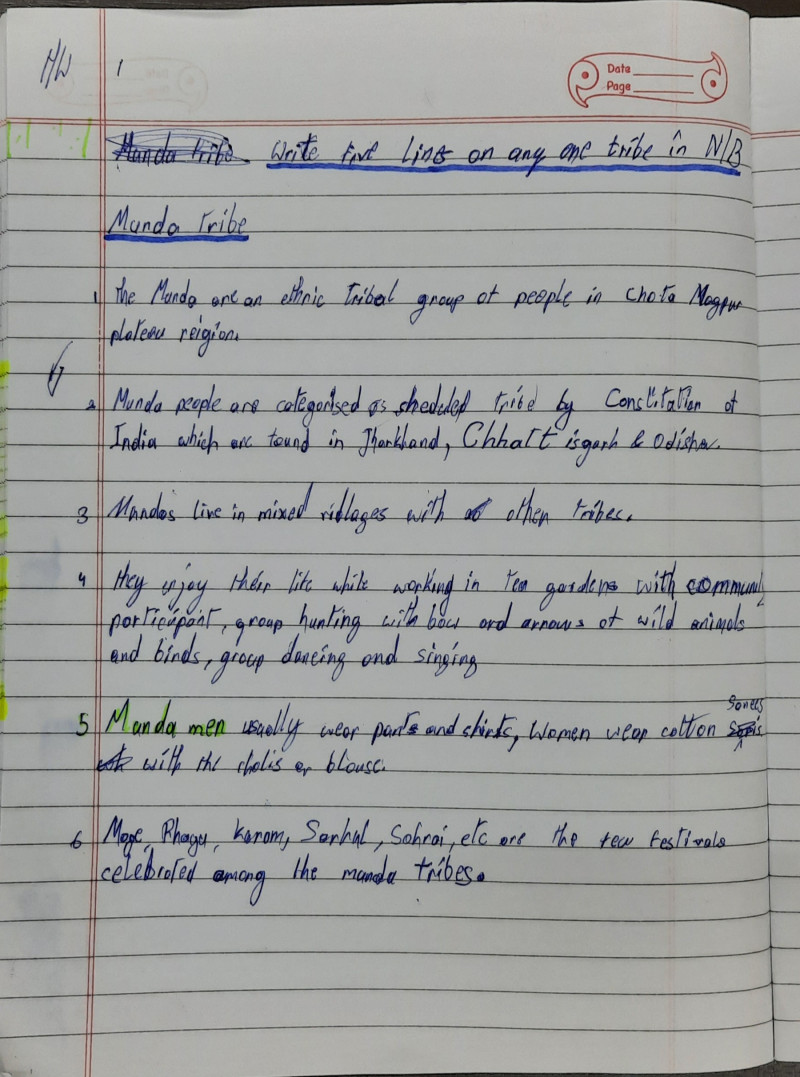 HW 1
Date
Page
Munda tribe Write Five Lines on any one tribe in N/B
Munda Tribe
1 The Munda are an ethnic Tribal group of people in Chota Nagpur
plateau reigion.
2 Munda people are categorised as sheduled tribe by Constitation of
India which are found in Jharkhand, Chhattisgarh & Odisha.
3 Mundas live in mixed villages with other tribes.
4 they enjoy their life while working in Tea gardens with community
participant, group hunting with bow and arrows of wild animals
and birds, group dancing and singing
5 Munda men usually wear pants and shirts, Women wear cotton sarees
with the cholis or blouse.
6 Mage, Phagu, Karam, Sarhul, Sohrai, etc are the few festivals
celebrated among the munda tribes.